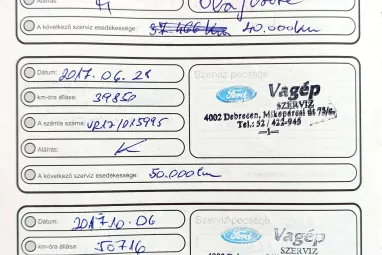 Aláírás:
A következő szerviz esedékessége: 37.466 km 40.000km
Dátum: 2017.06.28
km-óra állása: 39850
A számla száma: VP17/015995
Aláírás:
A következő szerviz esedékessége: 50.000km
Szerviz pecsétje
Ford Vagép
SZERVIZ
4002 Debrecen, Mikepércsi út 73/c.
Tel.: 52 / 422-945
—1—
Dátum: 201710.06
km-óra állása: 50716
Szerviz pecsétje
Ford Vagép
SZERVIZ